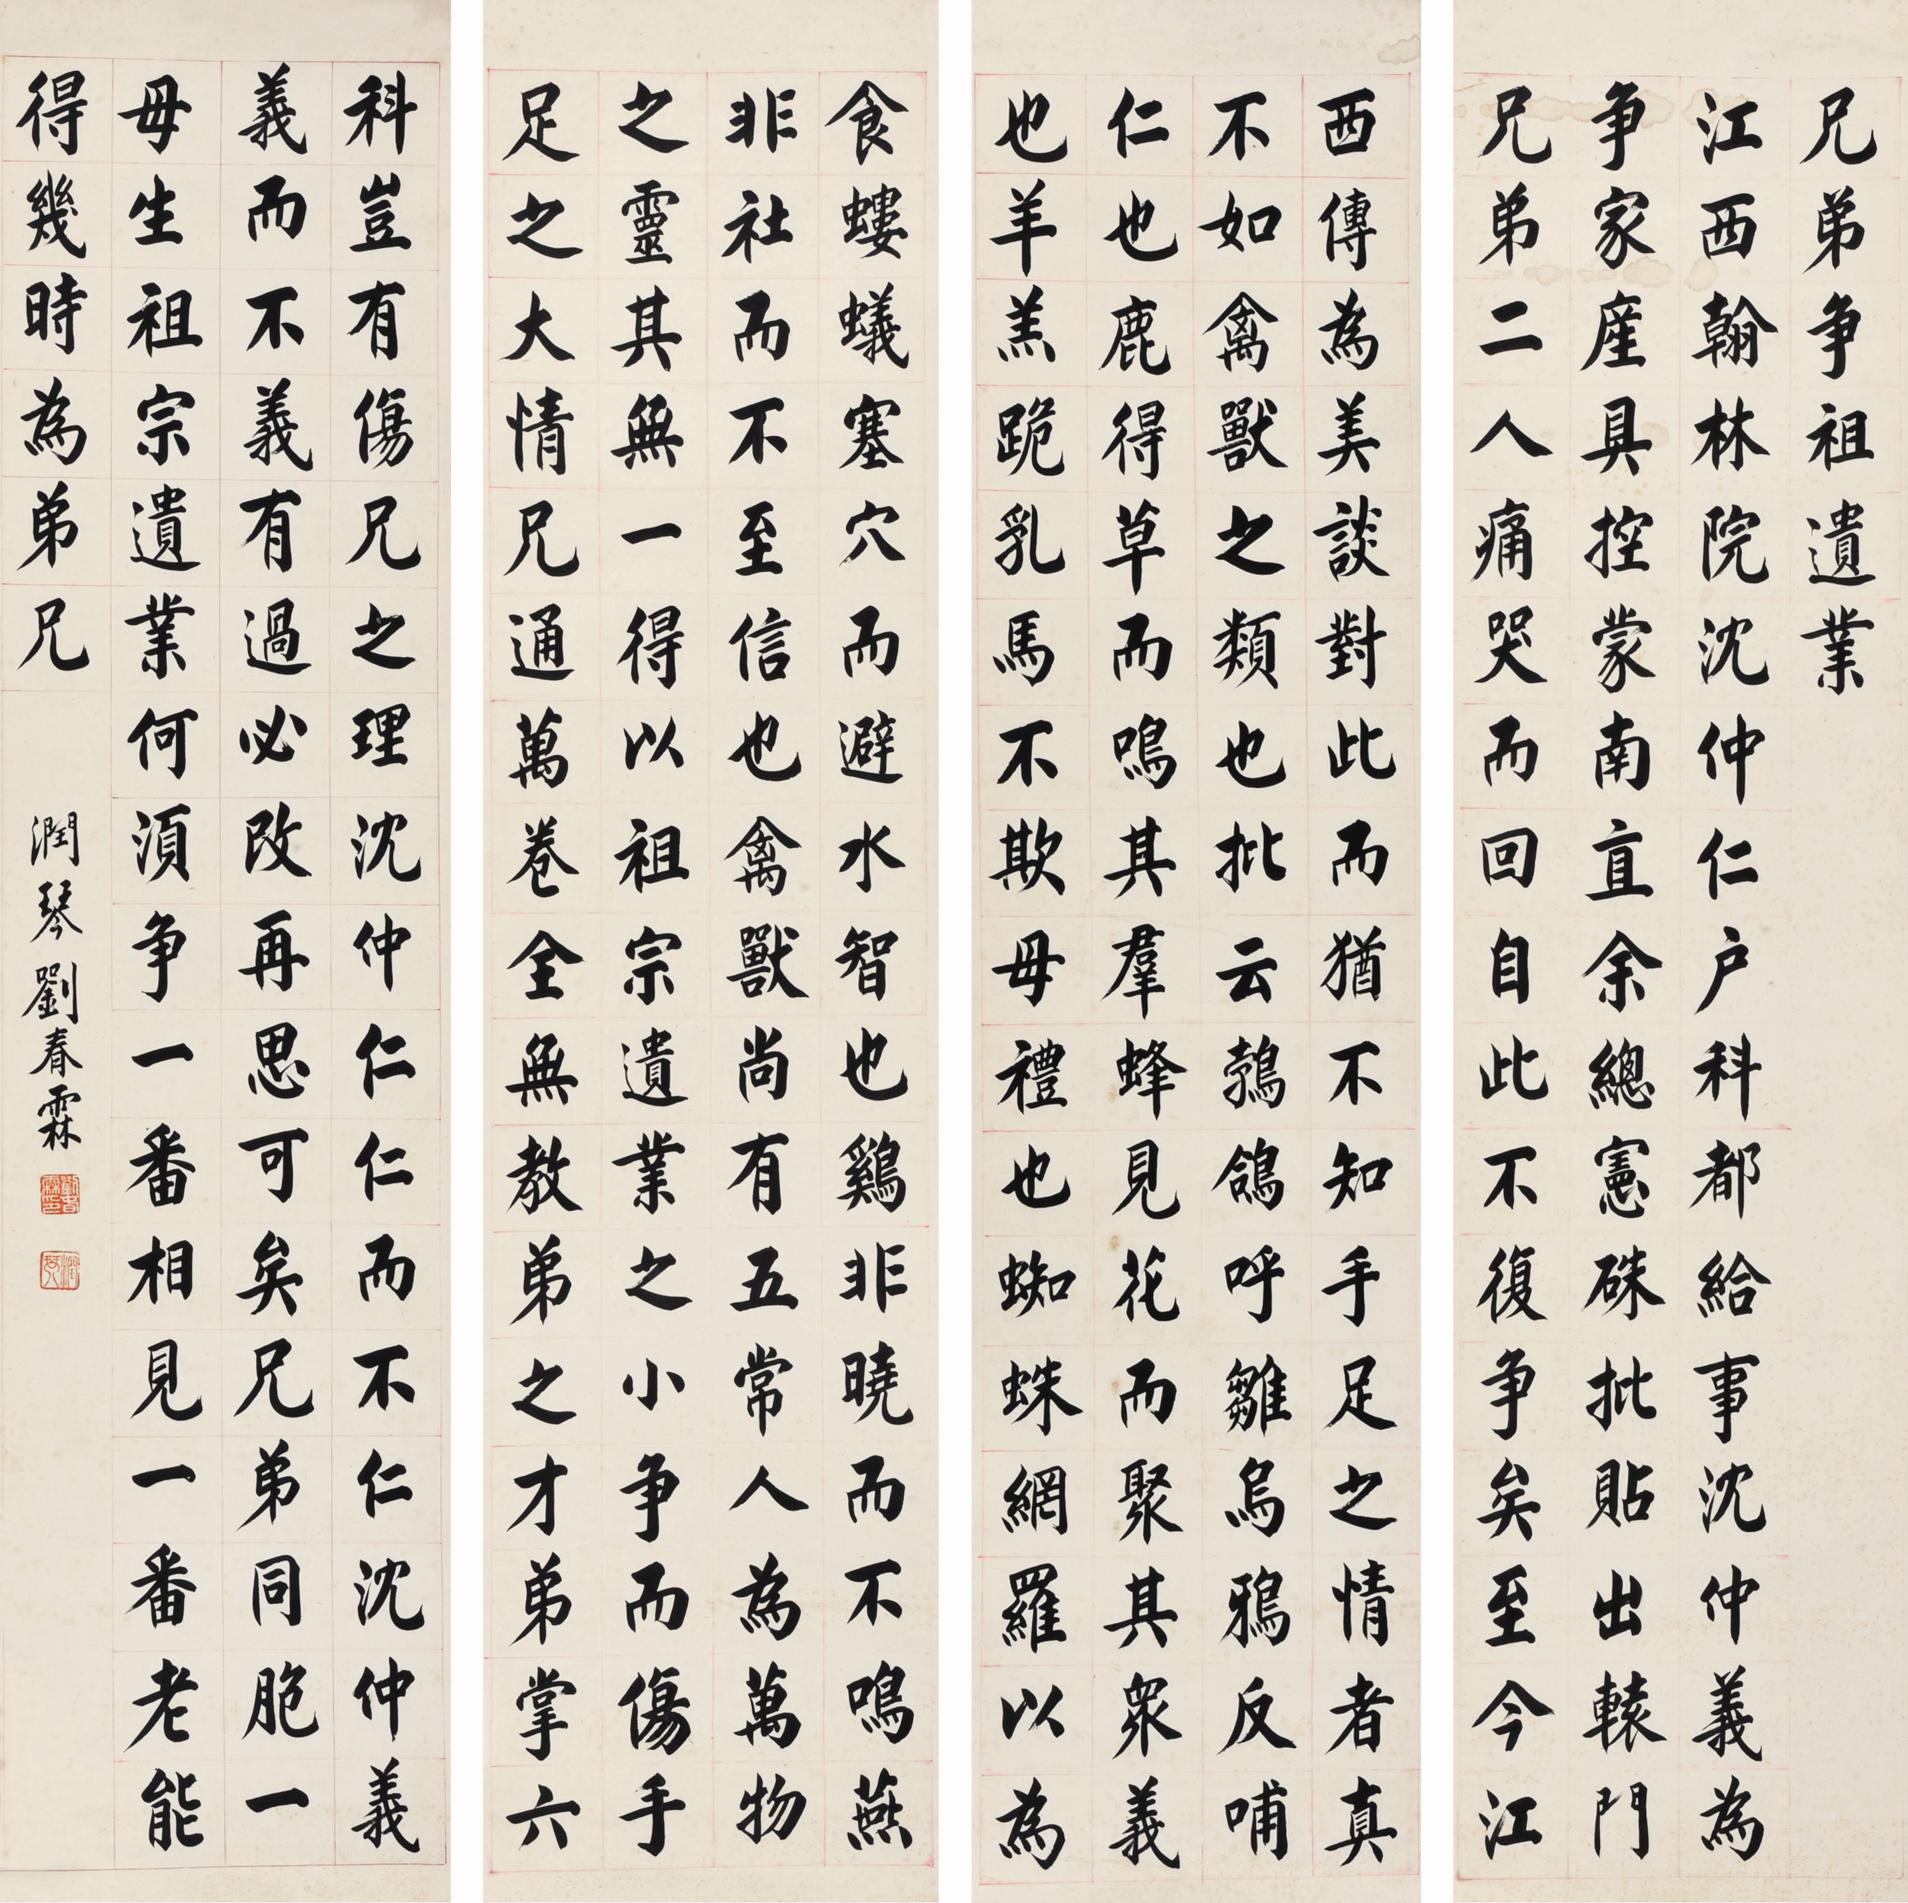 兄弟争祖遺業
江西翰林院沈仲仁户科都給事沈仲義為
争家産具控蒙南直余總憲硃批貼出轅門
兄弟二人痛哭而回自此不復争矣至今江
西傳為美談對此而猶不知手足之情者真
不如禽獸之類也批云鵓鴿呼雛烏鴉反哺
仁也鹿得草而鳴其羣蜂見花而聚其衆義
也羊羔跪乳馬不欺母禮也蜘蛛網羅以為
食螻蟻塞穴而避水智也鷄非曉而不鳴燕
非社而不至信也禽獸尚有五常人為萬物
之靈其無一得以祖宗遺業之小争而傷手
足之大情兄通萬卷全無教弟之才弟掌六
科豈有傷兄之理沈仲仁仁而不仁沈仲義
義而不義有過必改再思可矣兄弟同胞一
母生祖宗遺業何須争一番相見一番老能
得幾時為弟兄
潤琴劉春霖
劉春霖印
潤琴